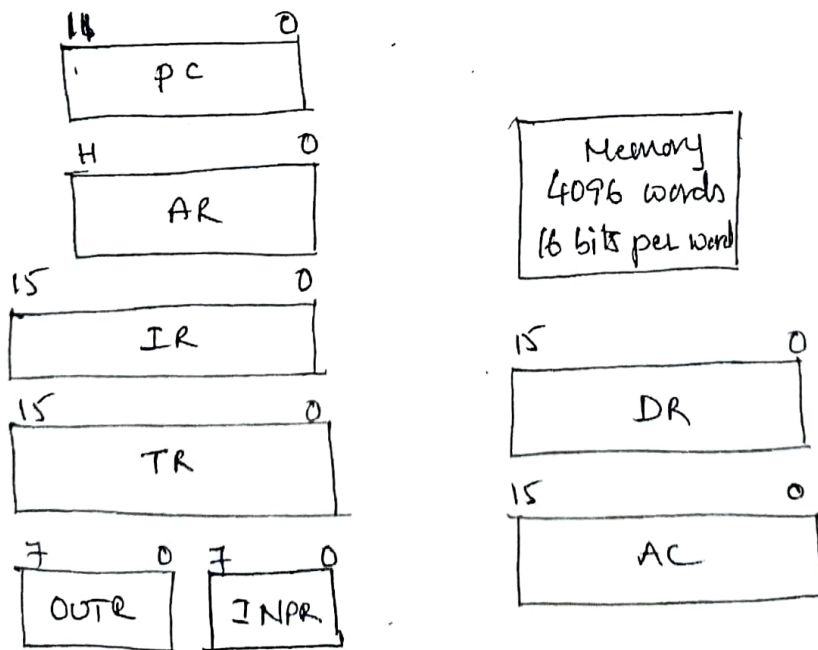 11 0
PC
11 0
AR
15 0
IR
15 0
TR
7 0
OUTR
7 0
INPR
Memory
4096 words
16 bits per word
15 0
DR
15 0
AC